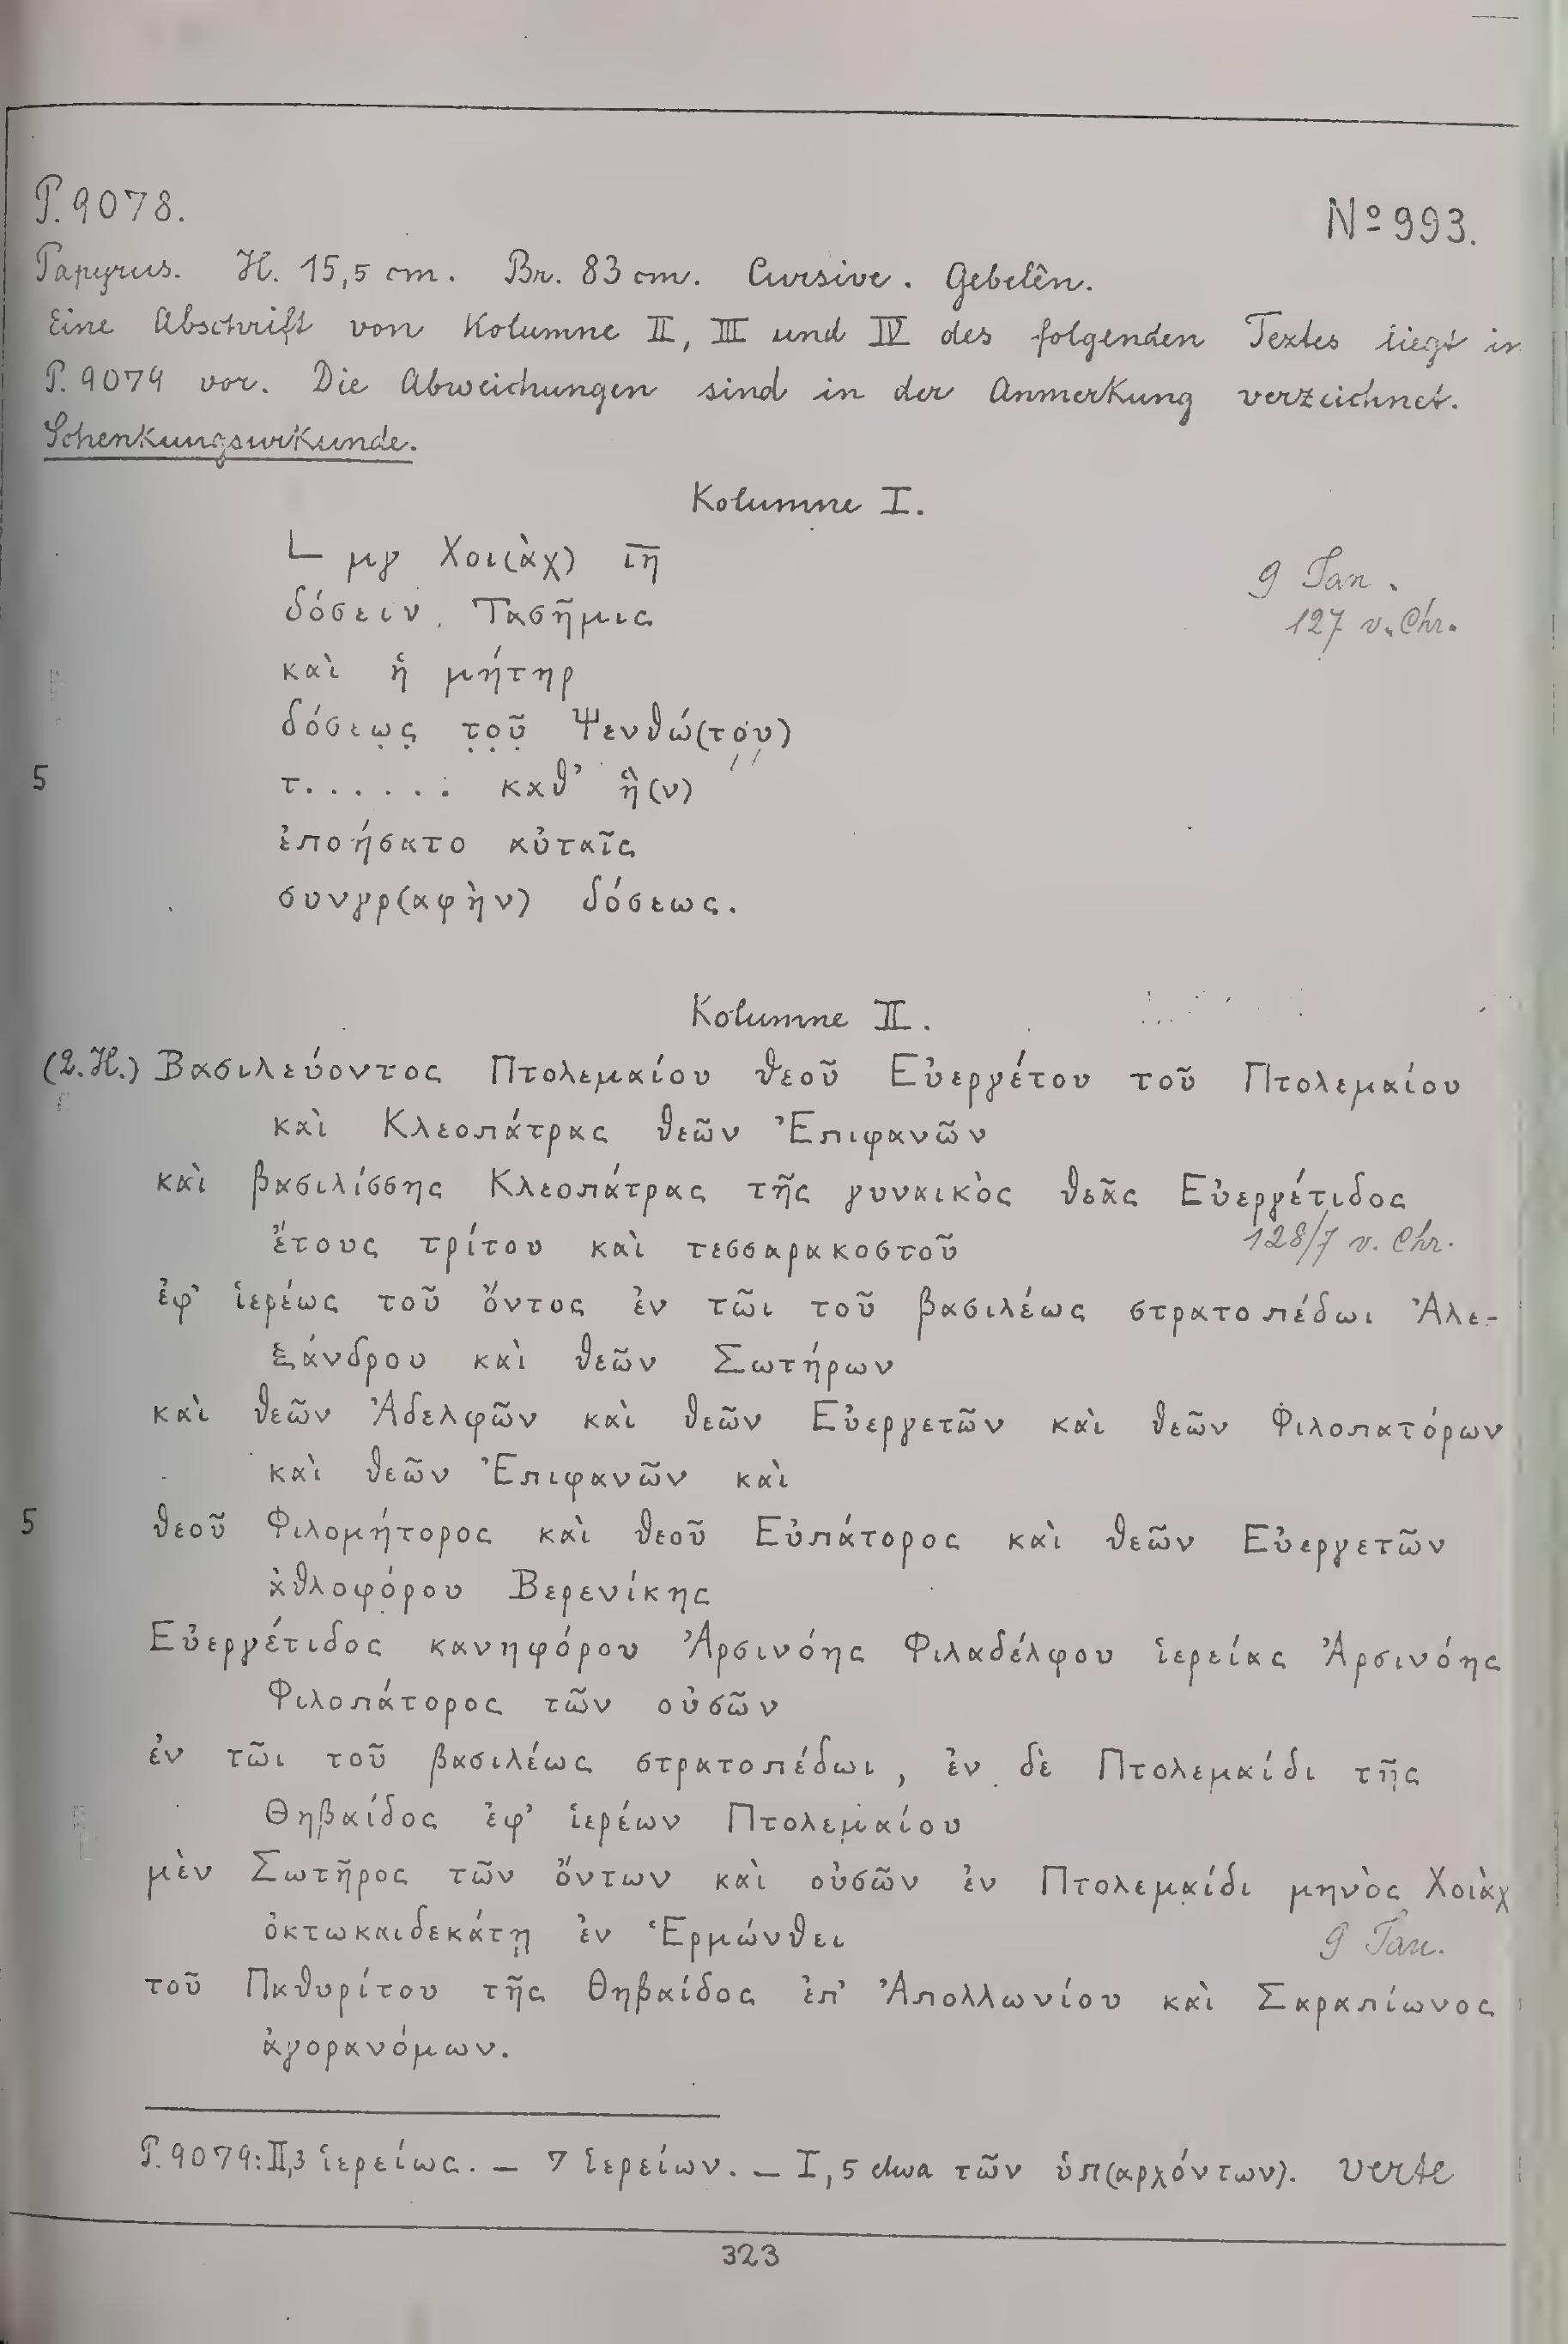 P. 9078. Nº 993.
Papyrus. H. 15,5 cm. Br. 83 cm. Cursive. Gebelên.
Eine Abschrift von Kolumne II, III und IV des folgenden Textes liegt in
P. 9079 vor. Die Abweichungen sind in der Anmerkung verzeichnet.
Schenkungsurkunde.
Kolumne I.
∟ μγ Χοι(ὰχ) ι̅η̅
9 Jan.
δόσειν. Τασῆμις
127 v. Chr.
καὶ ἡ μήτηρ
δόσεω̣ς̣ τ̣ο̣ῦ̣ Ψενθώ(του)
5 τ. . . . . . καθ’ ἣ(ν)
ἐποήσατο αὐταῖς
συνγρ(αφὴν) δόσεως.
Kolumne II.
(2. H.) Βασιλεύοντος Πτολεμαίου θεοῦ Εὐεργέτου τοῦ Πτολεμαίου
καὶ Κλεοπάτρας θεῶν Ἐπιφανῶν
καὶ βασιλίσσης Κλεοπάτρας τῆς γυναικὸς θεᾶς Εὐεργέτιδος
ἔτους τρίτου καὶ τεσσαρακοστοῦ 128/7 v. Chr.
ἐφ’ ἱερέως τοῦ ὄντος ἐν τῶι τοῦ βασιλέως στρατοπέδωι Ἀλε-
ξάνδρου καὶ θεῶν Σωτήρων
καὶ θεῶν Ἀδελφῶν καὶ θεῶν Εὐεργετῶν καὶ θεῶν Φιλοπατόρων
καὶ θεῶν Ἐπιφανῶν καὶ
5 θεοῦ Φιλομήτορος καὶ θεοῦ Εὐπάτορος καὶ θεῶν Εὐεργετῶν
ἀθλοφόρου Βερενίκης
Εὐεργέτιδος κανηφόρου Ἀρσινόης Φιλαδέλφου ἱερείας Ἀρσινόης
Φιλοπάτορος τῶν οὐσῶν
ἐν τῶι τοῦ βασιλέως στρατοπέδωι, ἐν δὲ Πτολεμαίδι τῆς
Θηβαίδος ἐφ’ ἱερέων Πτολεμαίου
μὲν Σωτῆρος τῶν ὄντων καὶ οὐσῶν ἐν Πτολεμαίδι μηνὸς Χοιὰχ
ὀκτωκαιδεκάτῃ ἐν Ἑρμώνθει 9 Jan.
τοῦ Παθυρίτου τῆς Θηβαίδος ἐπ’ Ἀπολλωνίου καὶ Σαραπίωνος
ἀγορανόμων.
P. 9079: II,3 ἱερείως. — 7 ἱερείων. — I, 5 etwa τῶν ὑπ(αρχόντων). verte
323